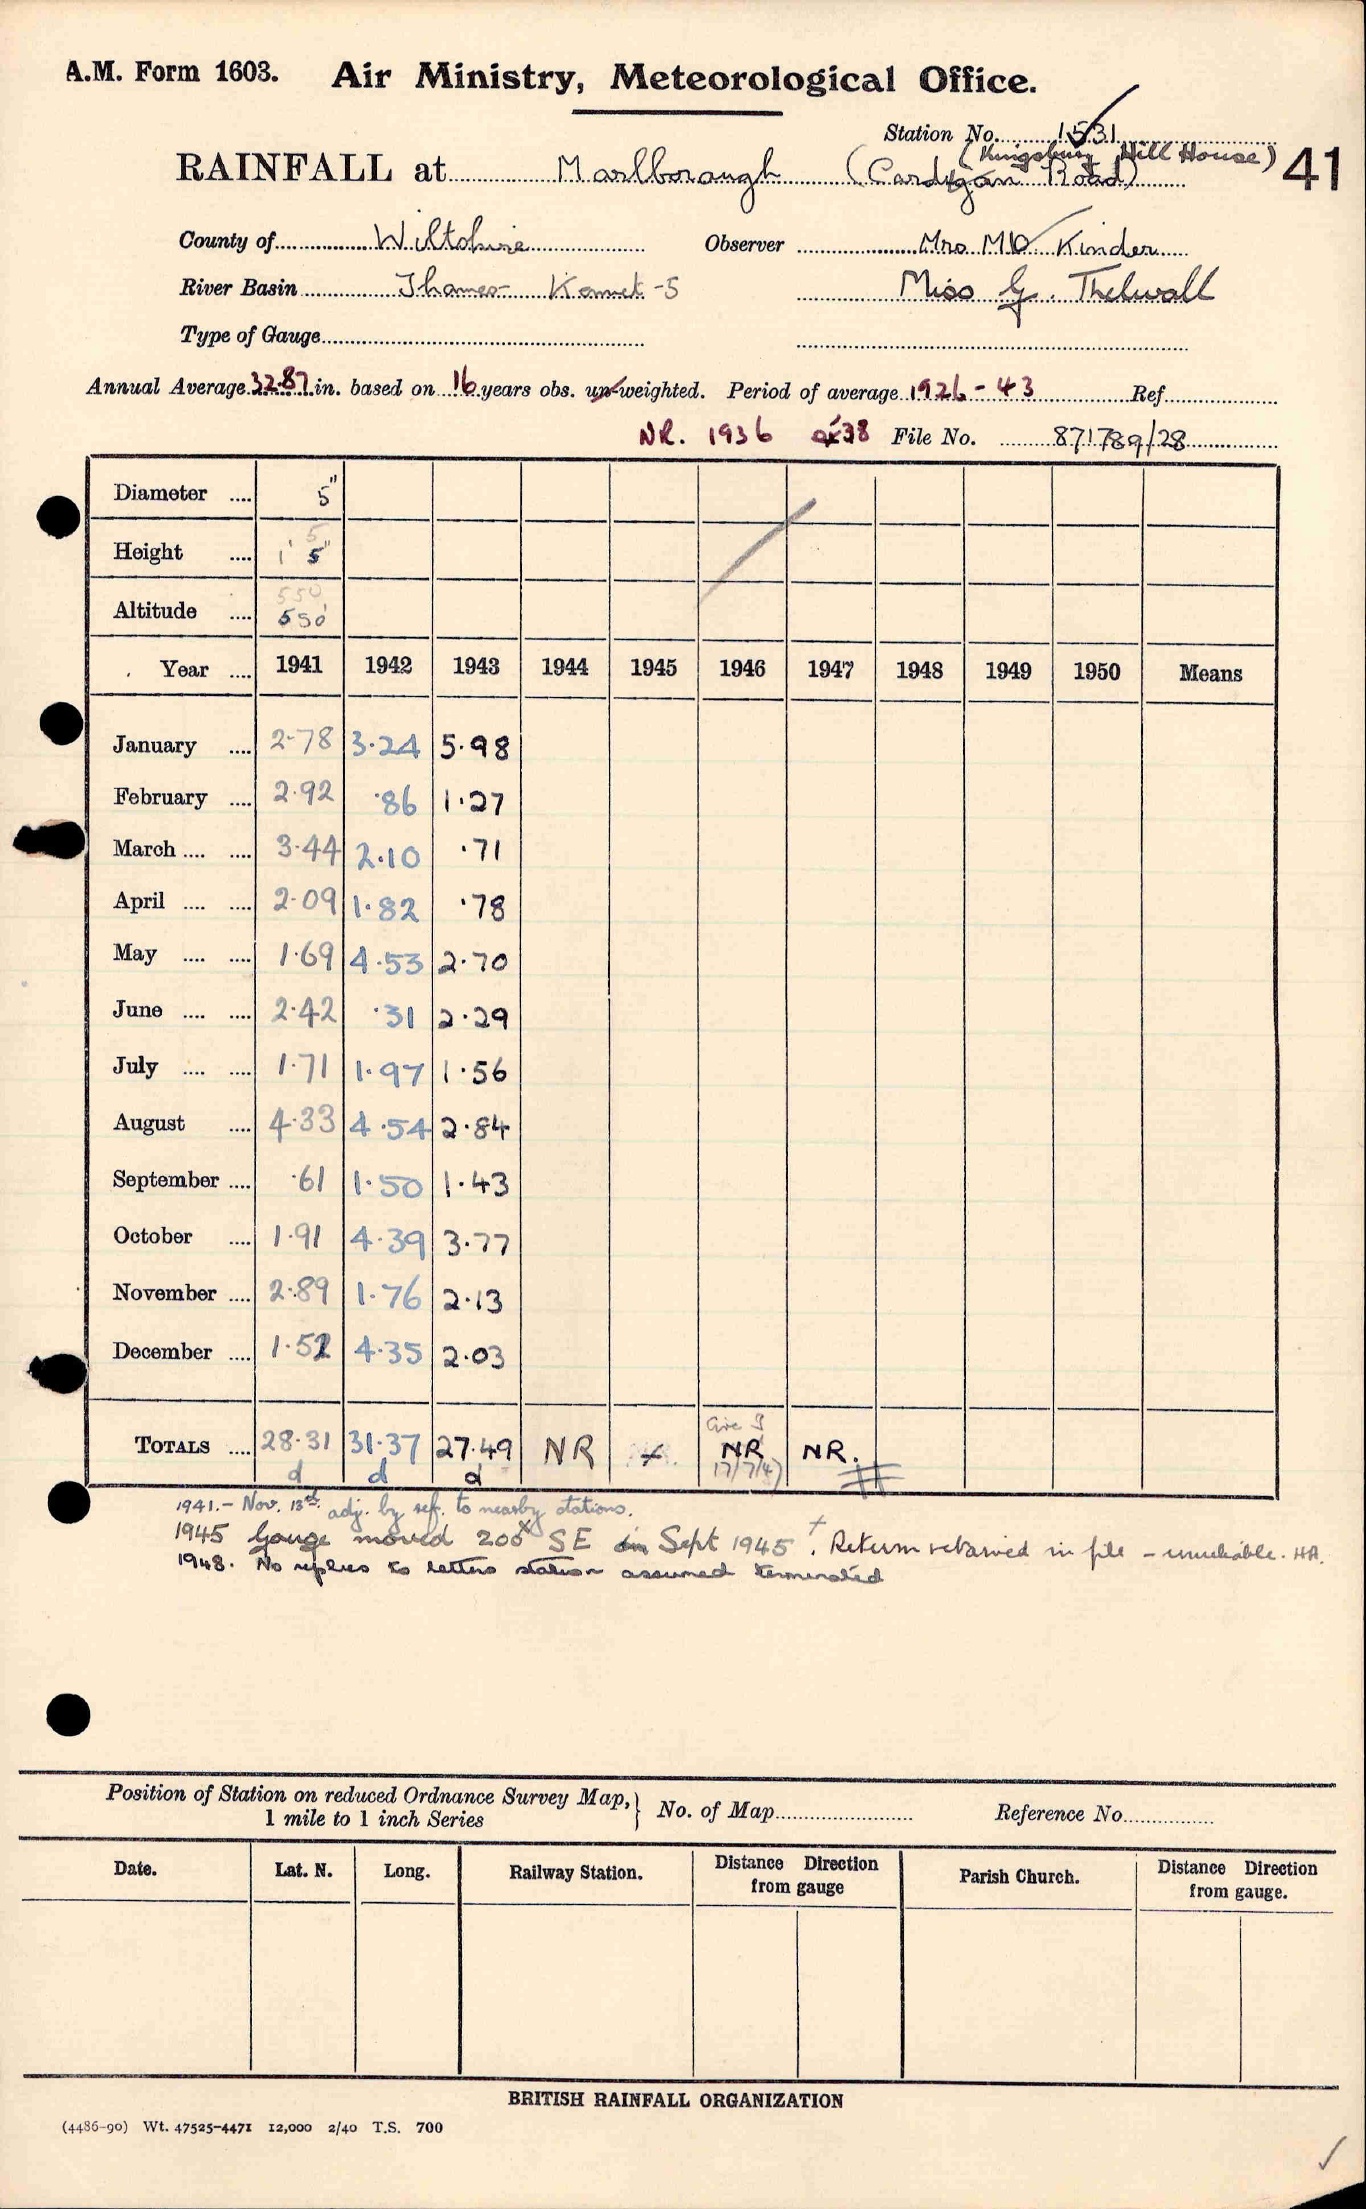 A.M. Form 1603. Air Ministry, Meteorological Office.
Station No. 1531
(Kingsbury Hill House)
RAINFALL at Marlborough (Cardigan Road) 41
County of Wiltshire Observer Mrs MD Kinder
River Basin Thames Kennet -5 Miss G. Thelwall
Type of Gauge
Annual Average 32.87 in. based on 16 years obs. un-weighted. Period of average 1926 - 43 Ref.
NR. 1936 38 File No. 871789/28
Diameter .... 5"
5
Height .... 1' 5"
550
Altitude .... 550'
Year .... 1941 1942 1943 1944 1945 1946 1947 1948 1949 1950 Means
January .... 2.78 3.24 5.98
February .... 2.92 .86 1.27
March .... .... 3.44 2.10 .71
April .... .... 2.09 1.82 .78
May .... .... 1.69 4.53 2.70
June .... .... 2.42 .31 2.29
July .... .... 1.71 1.97 1.56
August .... 4.33 4.54 2.84
September .... .61 1.50 1.43
October .... 1.91 4.39 3.77
November .... 2.89 1.76 2.13
December .... 1.52 4.35 2.03
TOTALS .... 28.31 31.37 27.49 NR + NR NR.
d d d 17/7/47
1941.- Nov. 13th. adj. by ref. to nearby stations.
1945 Gauge moved 200x SE in Sept 1945 + . Return retained in file - unreliable. HA.
1948. No replies to letters station assumed terminated
Position of Station on reduced Ordnance Survey Map, } No. of Map Reference No.
1 mile to 1 inch Series
Date. Lat. N. Long. Railway Station. Distance Direction from gauge Parish Church. Distance Direction from gauge.
BRITISH RAINFALL ORGANIZATION
(4486-90) Wt. 47525-4471 12,000 2/40 T.S. 700